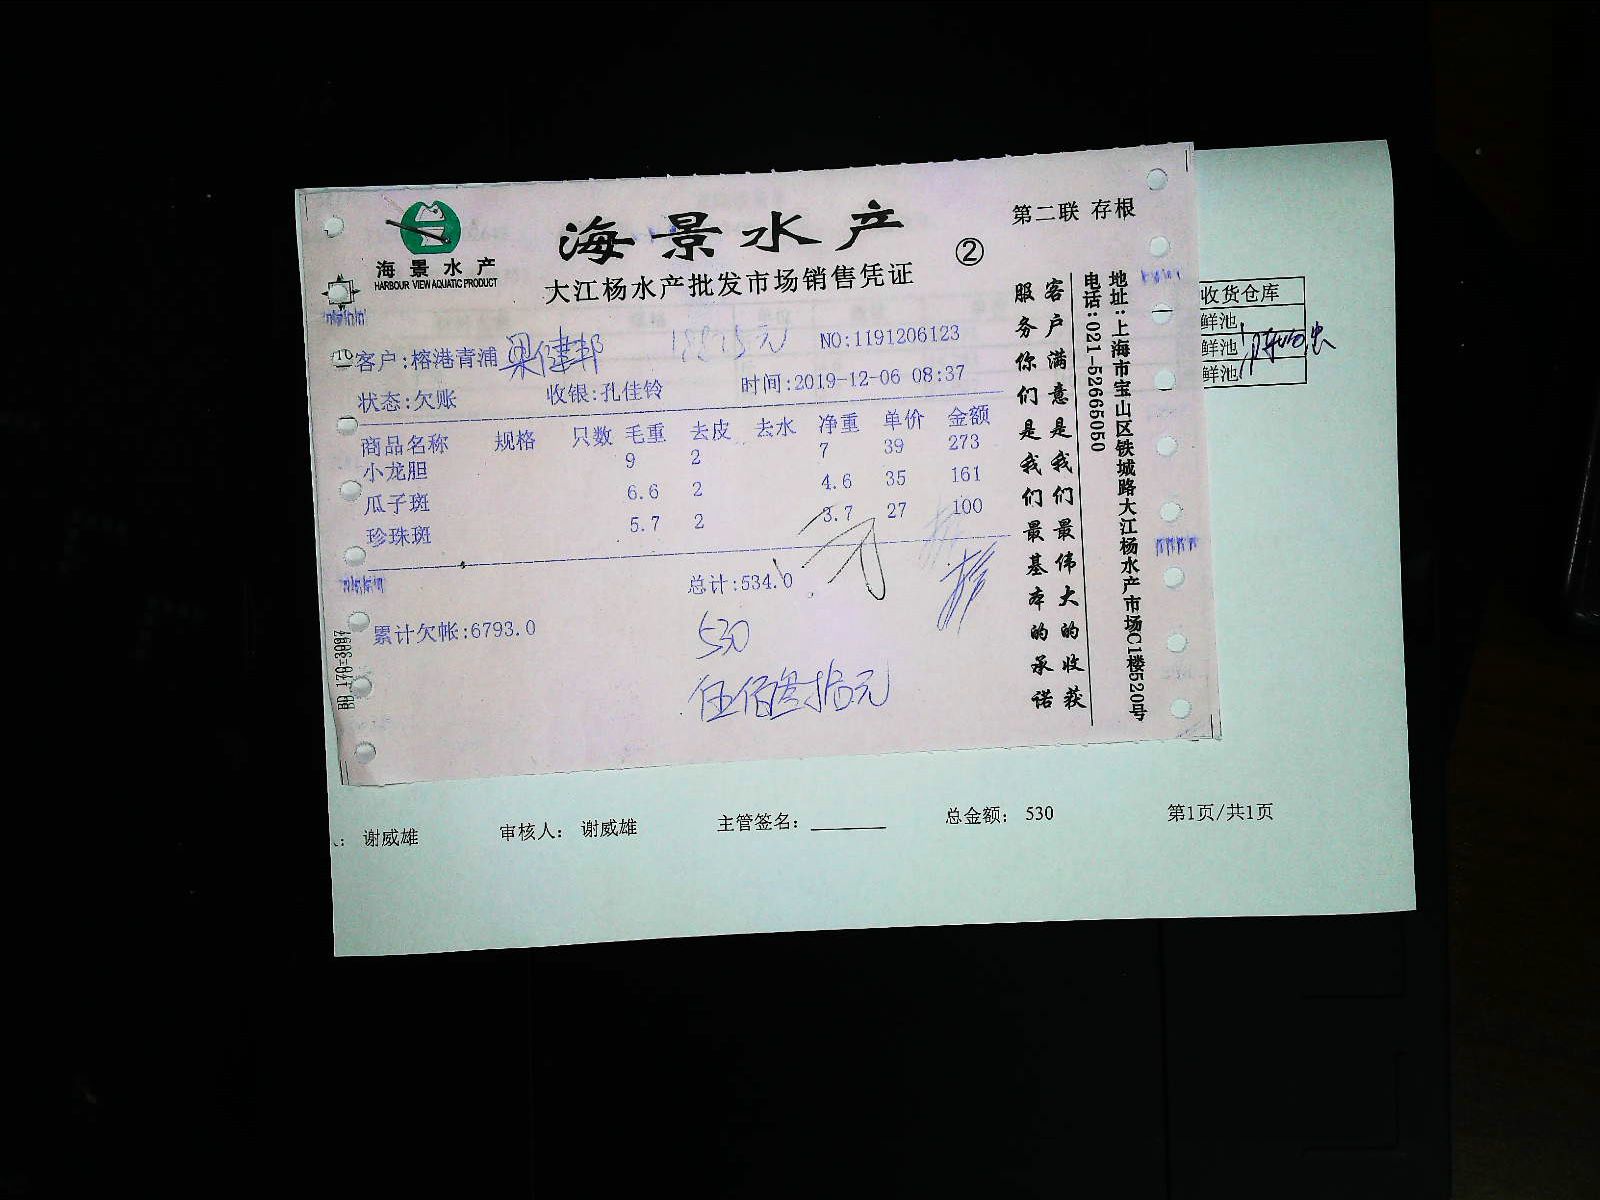 海景水产
HARBOUR VIEW AQUATIC PRODUCT
海景水产
大江杨水产批发市场销售凭证
②
第二联 存根
客户:榕港青浦 梁健邦
NO:1191206123
状态:欠账 收银:孔佳铃 时间:2019-12-06 08:37
商品名称 规格 只数 毛重 去皮 去水 净重 单价 金额
小龙胆 9 2 7 39 273
瓜子斑 6.6 2 4.6 35 161
珍珠斑 5.7 2 3.7 27 100
总计:534.0
累计欠帐:6793.0
530
伍佰叁拾元
客户满意是我们最伟大的收获
服务你们是我们最基本的承诺
地址:上海市宝山区铁城路大江杨水产市场C1楼520号
电话:021-52665050
收货仓库
鲜池
鲜池
鲜池
谢威雄 审核人: 谢威雄 主管签名: 总金额: 530 第1页/共1页